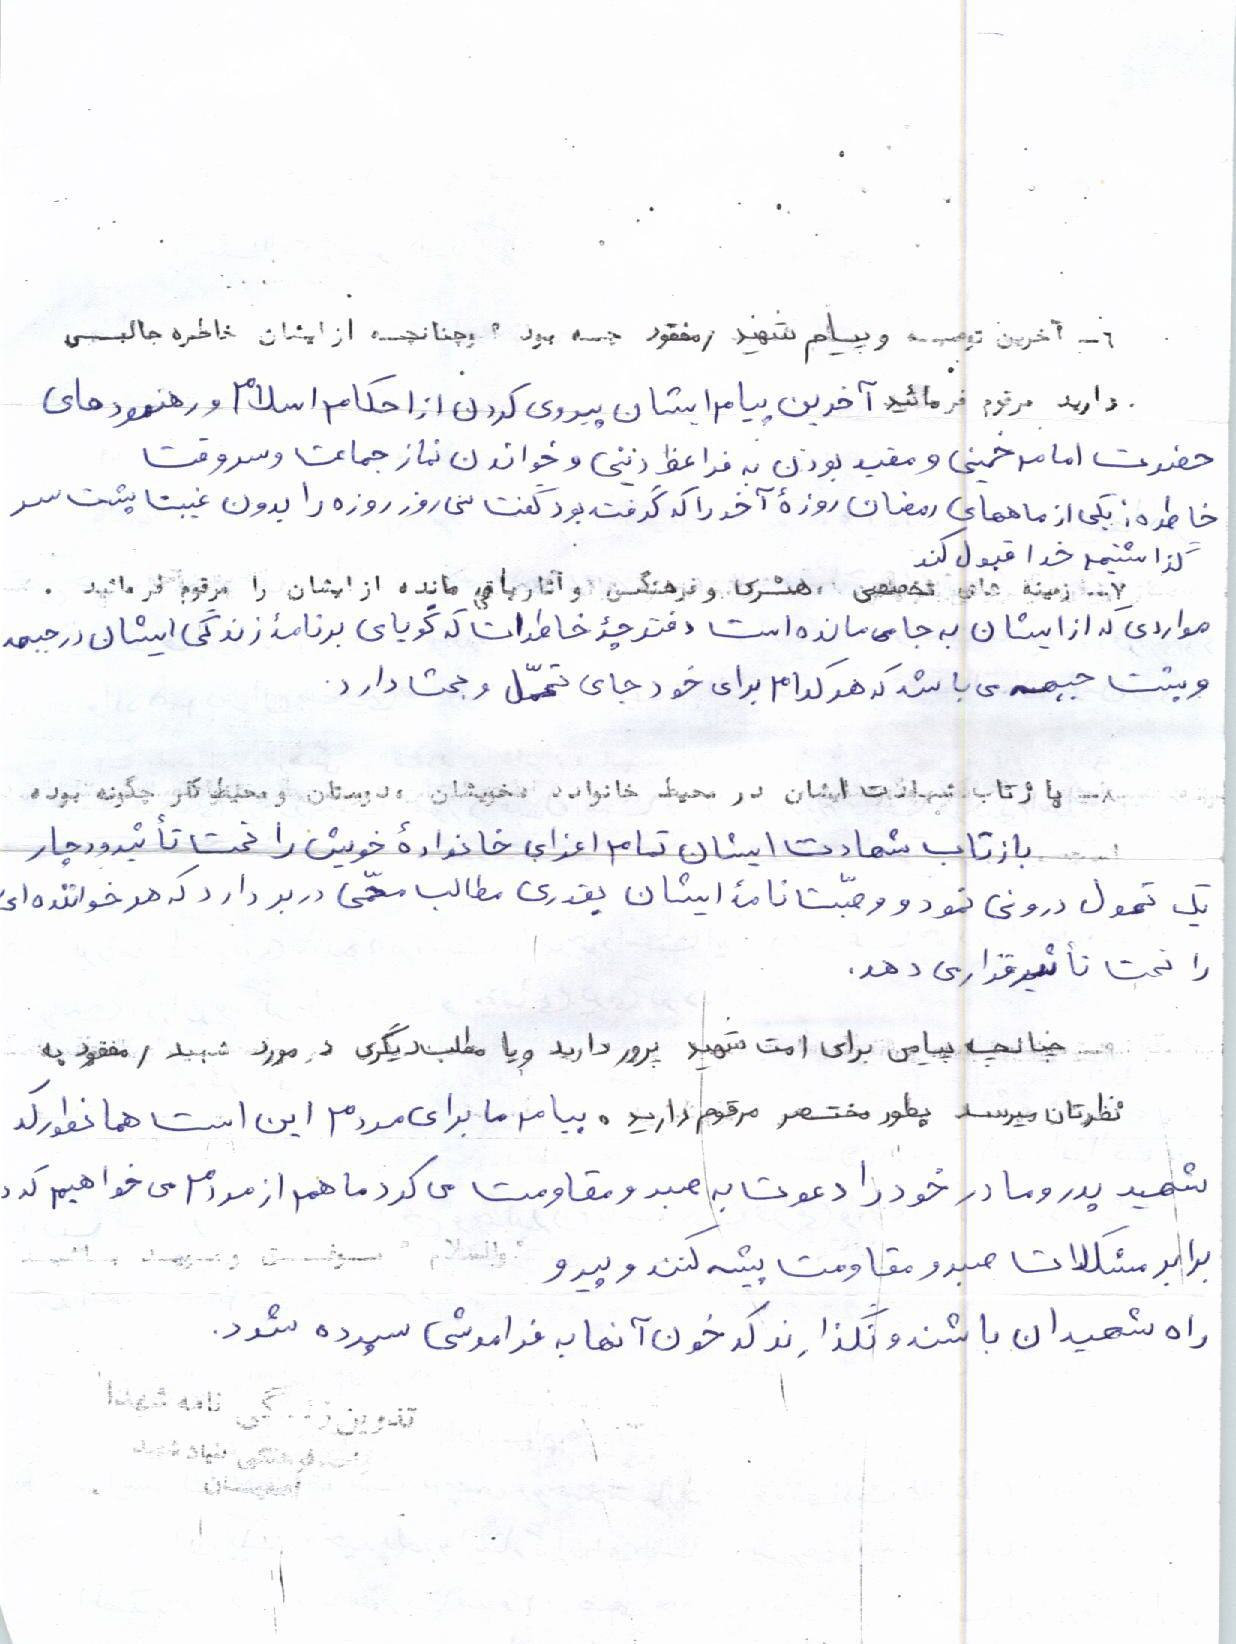 ۶ــ آخرین توصیـه و پیـام شهید /مفقود چـه بود ؟ وچنانچـه از ایشان خاطره جالبـی
دارید مرقوم فرمائید آخرین پیام ایشان پیروی کردن از احکام اسلام و رهنمودهای
حضرت امام خمینی و مقید بودن به فرا غظ دینی و خواندن نماز جماعت و سر وقت
خاطره: یکی از ماههای رمضان روزهٔ آخر را که گرفته بود گفت سی روز روزه را بدون غیبت پشت سر
گذاشتیم خدا قبول کند
۷ــ زمینه های تخصصی ، هنـری و فرهنگـی و آثار باقی مانده از ایشان را مرقوم فرمائید .
مواردی که از ایشان به جا می مانده است دفترچهٔ خاطرات که گویای برنامهٔ زندگی ایشان در جبهه
و پشت جبهه می باشد که هر کدام برای خود جای تحمّل و بحث دارد.
۸ــ بازتاب شهادت ایشان در محیط خانواده ، خویشان ، دوستان و محیط کار چگونه بوده
است بازتاب شهادت ایشان تمام اعزای خانوادهٔ خویش را تحت تأثیر و دچار
یک تحول درونی نمود و وصیّت نامهٔ ایشان بقدری مطالب مهّمی در بر دارد که هر خواننده ای
را تحت تأثیر قرار می دهد.
۹ــ چنانچـه پیامی برای امت شهید پرور دارید و یا مطلب دیگری در مورد شهید /مفقود به
نظرتان میرسـد بطور مختصر مرقوم دارید ، پیام ما برای مردم این است همانطور که
شهید پدر و مادر خود را دعوت به صبر و مقاومت می کرد ما هم از مردم می خواهیم که در
برابر مشکلات صبر و مقاومت پیشه کنند و پیرو
" والسلام " مـوفـق و مـویـد بـاشیـد
راه شهیدان باشند و نگذارند که خون آنها به فراموشی سپرده شود.
تدوین زندگی نامه شهدا
واحد فرهنگی بنیاد شهید
اصفهـان